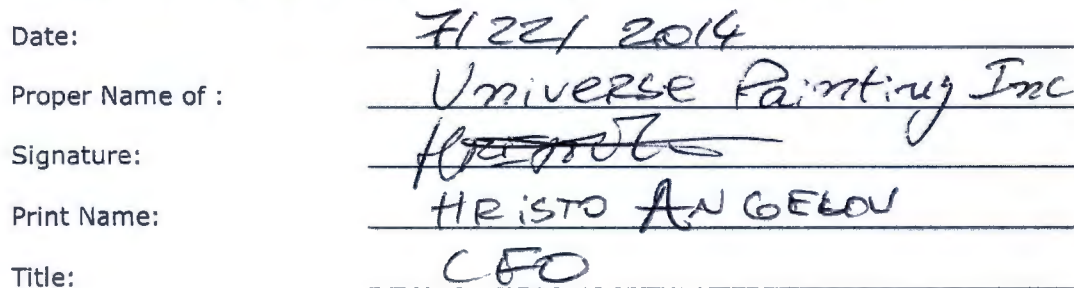 Date: 7/22/2014
Proper Name of : Universe Painting Inc
Signature:
Print Name: HRISTO ANGELOV
Title: CEO